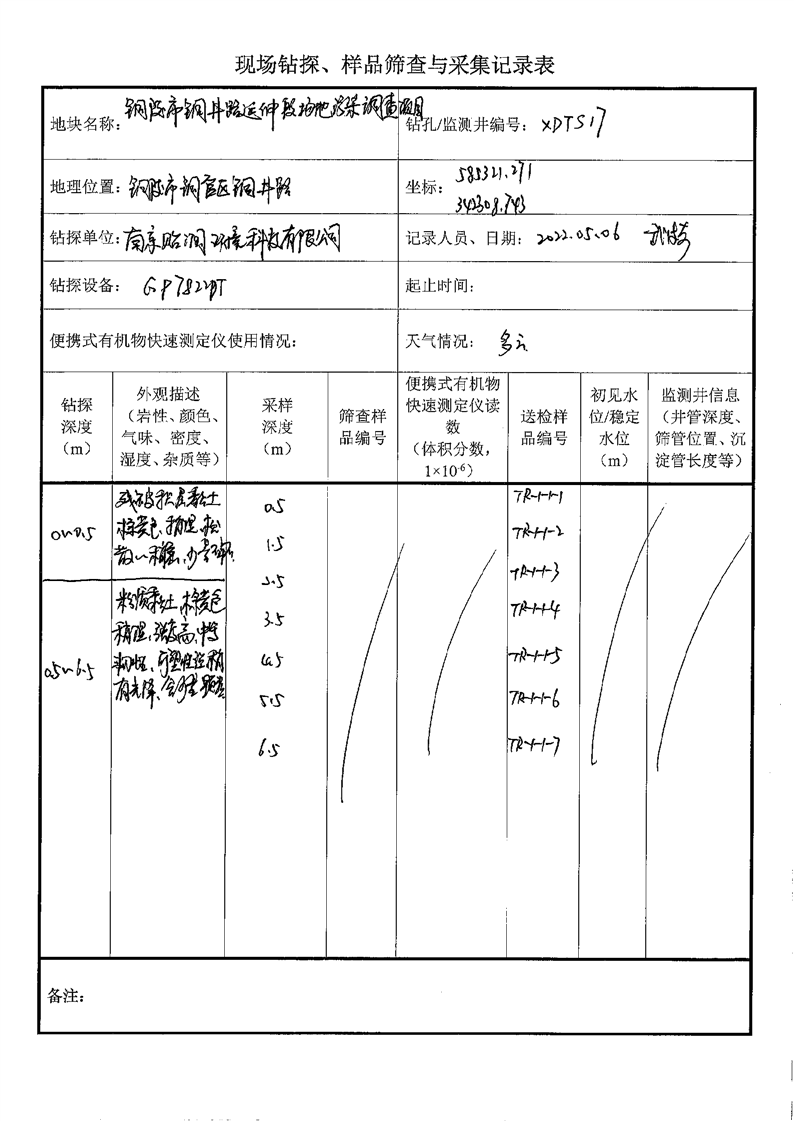 现场钻探、样品筛查与采集记录表
地块名称：铜陵市铜井路延伸段场地污染调查项目
钻孔/监测井编号：XDTS17
地理位置：铜陵市铜官区铜井路
坐标：585321.271
342308.743
钻探单位：南京贻润环境科技有限公司
记录人员、日期：2022.05.06
钻探设备：GP7822DT
起止时间：
便携式有机物快速测定仪使用情况：
天气情况：多云
钻探
深度
（m）
外观描述
（岩性、颜色、
气味、密度、
湿度、杂质等）
采样
深度
（m）
筛查样
品编号
便携式有机物
快速测定仪读
数
（体积分数，
1×10⁻⁶）
送检样
品编号
初见水
位/稳定
水位
（m）
监测井信息
（井管深度、
筛管位置、沉
淀管长度等）
0~0.5
残坡积层黏土
棕黄色、稍湿、松
散~稍密、少量碎石
0.5~6.5
粉质黏土、棕黄色
稍湿、强度高、中等
韧性、可塑性
有光泽、含
0.5
1.5
2.5
3.5
4.5
5.5
6.5
TR-1-1-1
TR-1-1-2
TR-1-1-3
TR-1-1-4
TR-1-1-5
TR-1-1-6
TR-1-1-7
备注：